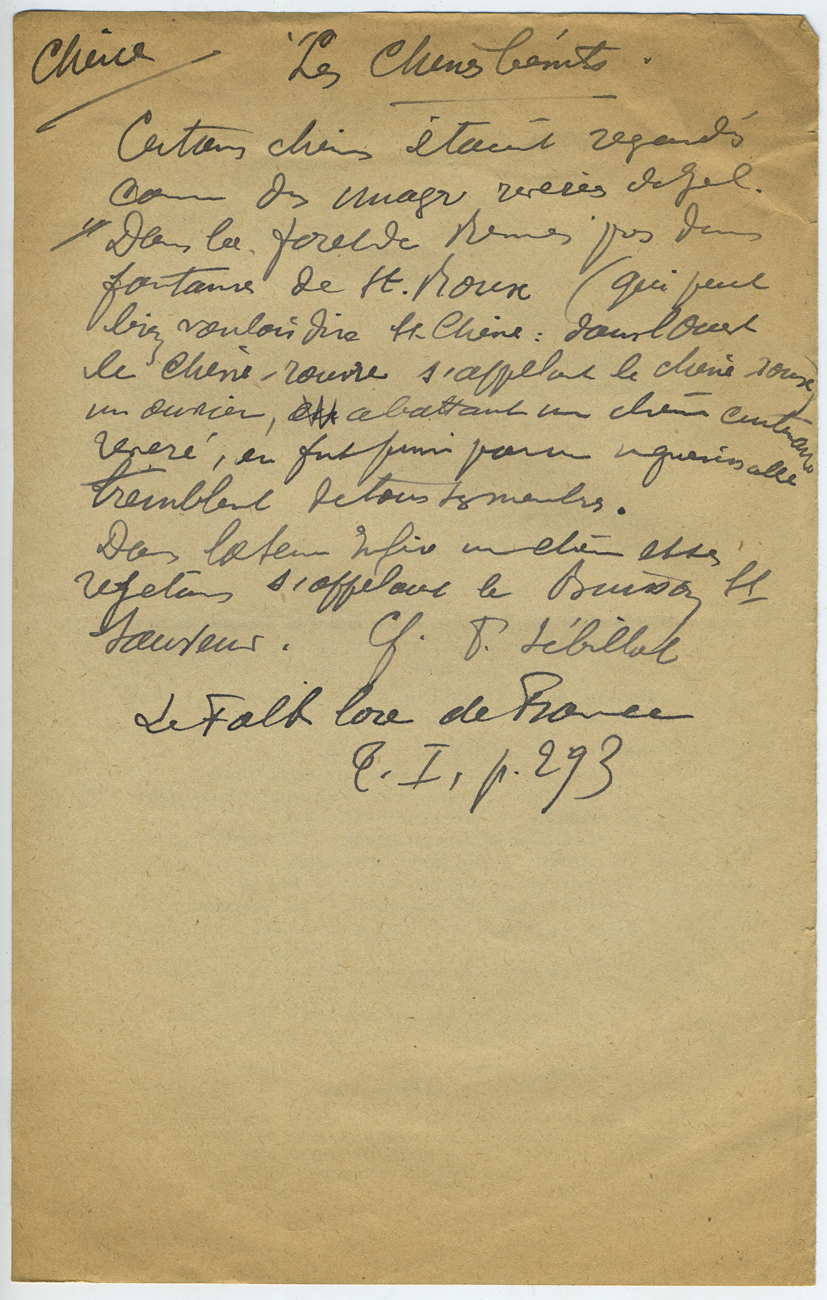 Chêne
"Les Chênes bénits.
Certains chênes étaient regardés
comme des images
" Dans la forêt de Rennes près d'une
fontaine de St. Roux (qui peut
bien vouloir dire St Chêne : dans l'Ouest
le chêne-rouvre s'appelant le chêne roux)
un ouvrier, abattant un chêne centenaire
révéré, en fut puni par un
tremblement de tous ses membres.
Dans la un chêne et ses
rejetons s'appelaient le Buisson St
Sauveur. Cf. P. Sébillot
Le Folk lore de France
T. I, p. 293